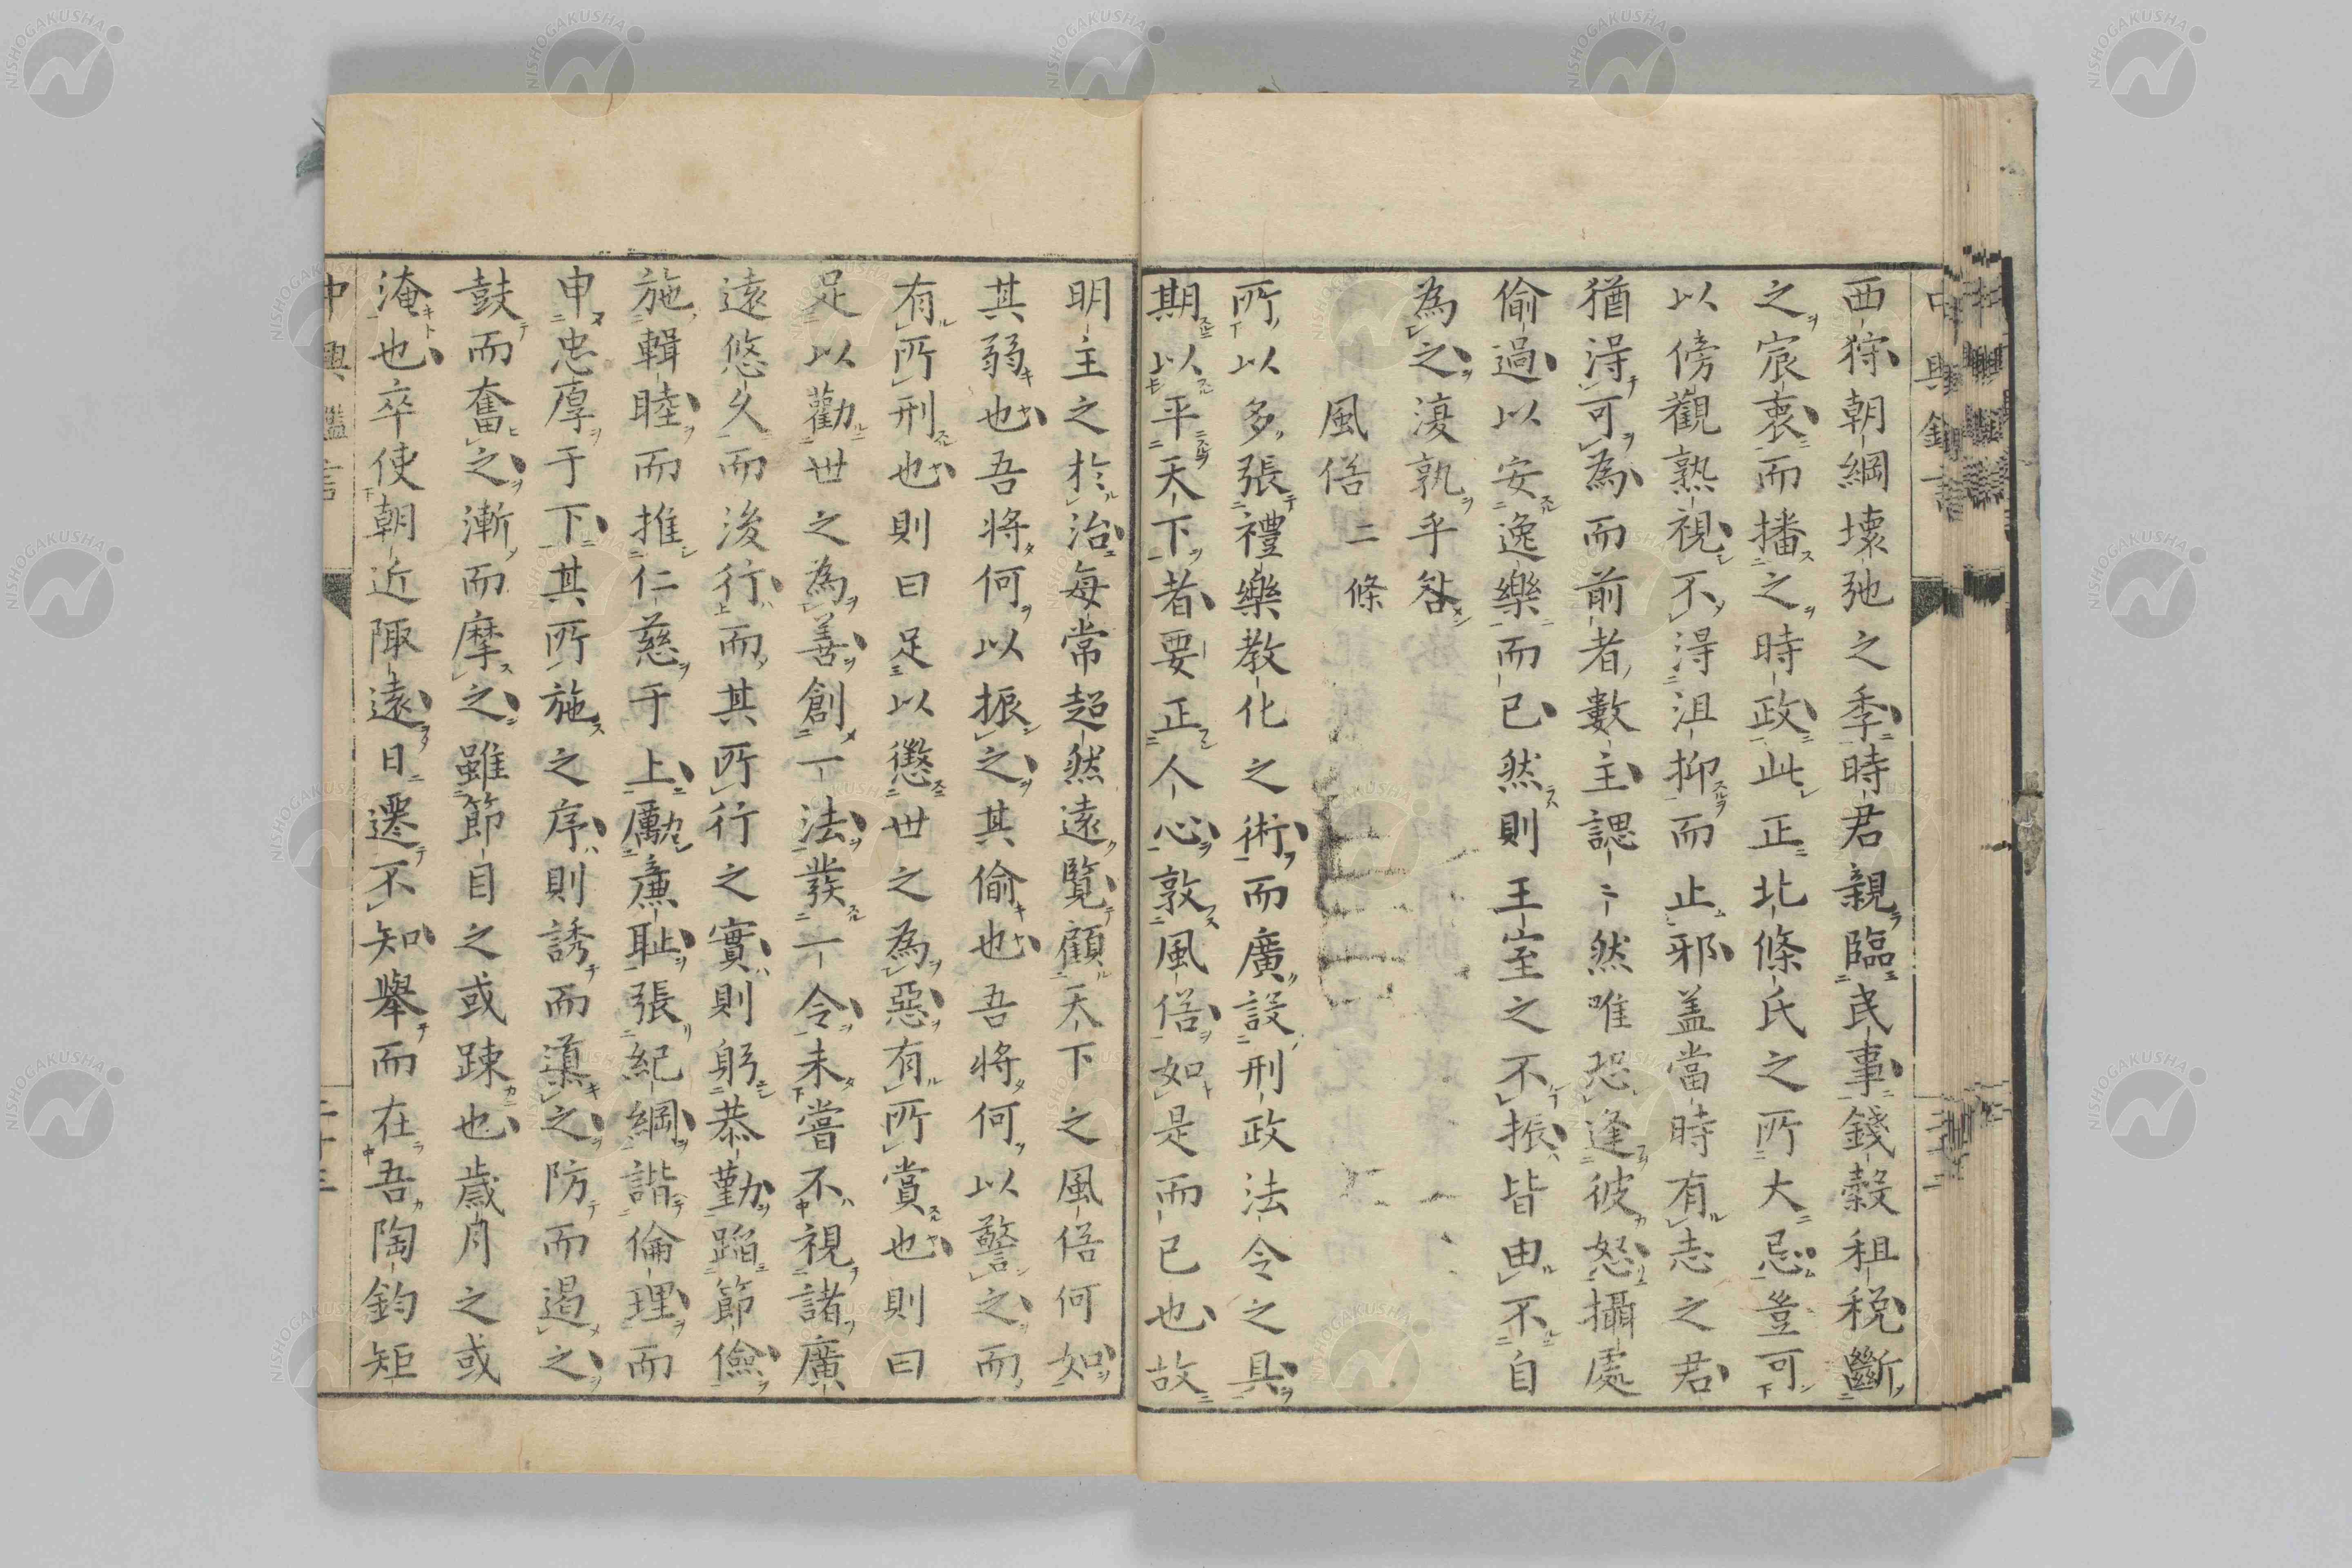 西狩朝綱壞弛之季時君親臨民事錢穀租稅斷
之宸衷而播之時政此正北條氏之所大忌豈可
以傍觀熟視不得沮抑而止邪蓋當時有志之君
猶得可為而前者數主諰〻然唯恐逢彼怒攝處
偷過以安逸樂而已然則王室之不振皆由不自
為之復孰乎咎
風俗二條
所以多張禮樂教化之術而廣設刑政法令之具
期以平天下者要正人心敦風俗如是而已也故
明主之於治每常超然遠覽顧天下之風俗何如
其弱也吾將何以振之其偷也吾將何以警之而
有所刑也則曰足以懲世之為惡有所賞也則曰
足以勸世之為善創一法發一令未嘗不視諸廣
遠悠久而後行而其所行之實則躬恭勤蹈節儉
施輯睦而推仁慈于上勵廉恥張紀綱諧倫理而
申忠厚于下其所施之序則誘而漸之防而遏之
鼓而奮之漸而摩之雖節目之或踈也歲月之或
淹也卒使朝近陬遠日遷不知舉而在吾陶鈞矩
中興鑑言
二十三
NISHOGAKUSHA